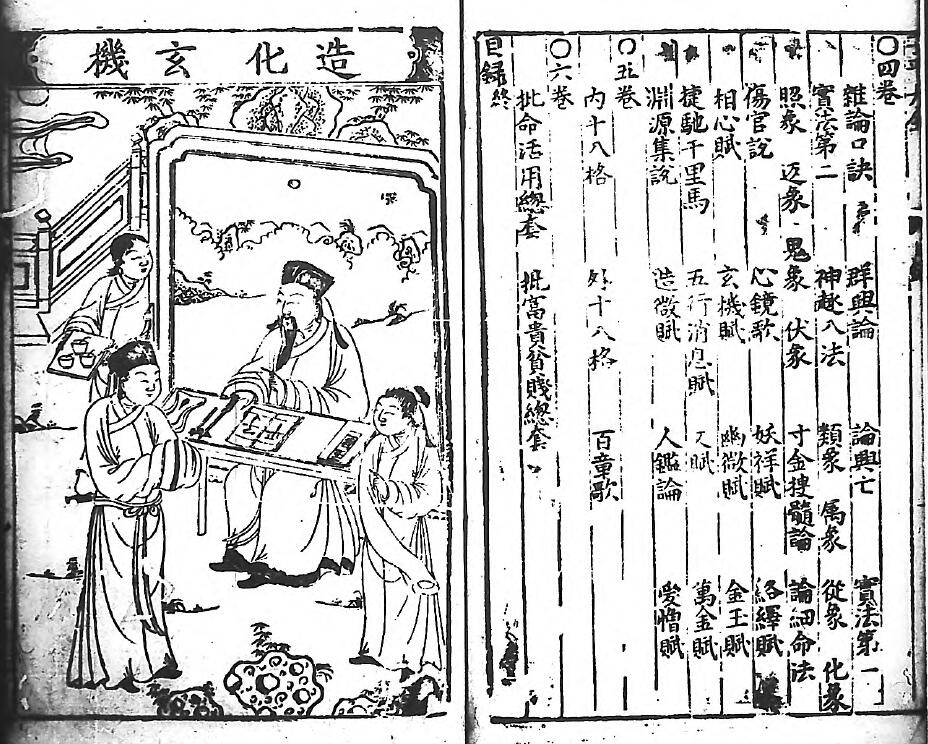 ○四卷
雜論口訣 群興論 論興亡 寳法第一
寳法第二 神趣八法 類象 属象 從象 化象
照象 返象 鬼象 伏象 寸金搜髓論 論細命法
傷官說 心鏡歌 妖祥賦 絡繹賦
相心賦 玄機賦 幽微賦 金玉賦
捷馳千里馬 五行消息賦 又賦 萬金賦
淵源集說 造微賦 人鑑論 愛憎賦
○五卷
內十八格 外十八格 百童歌
○六卷
批命活用總套 批富貴貧賤總套
目録終
造化玄機